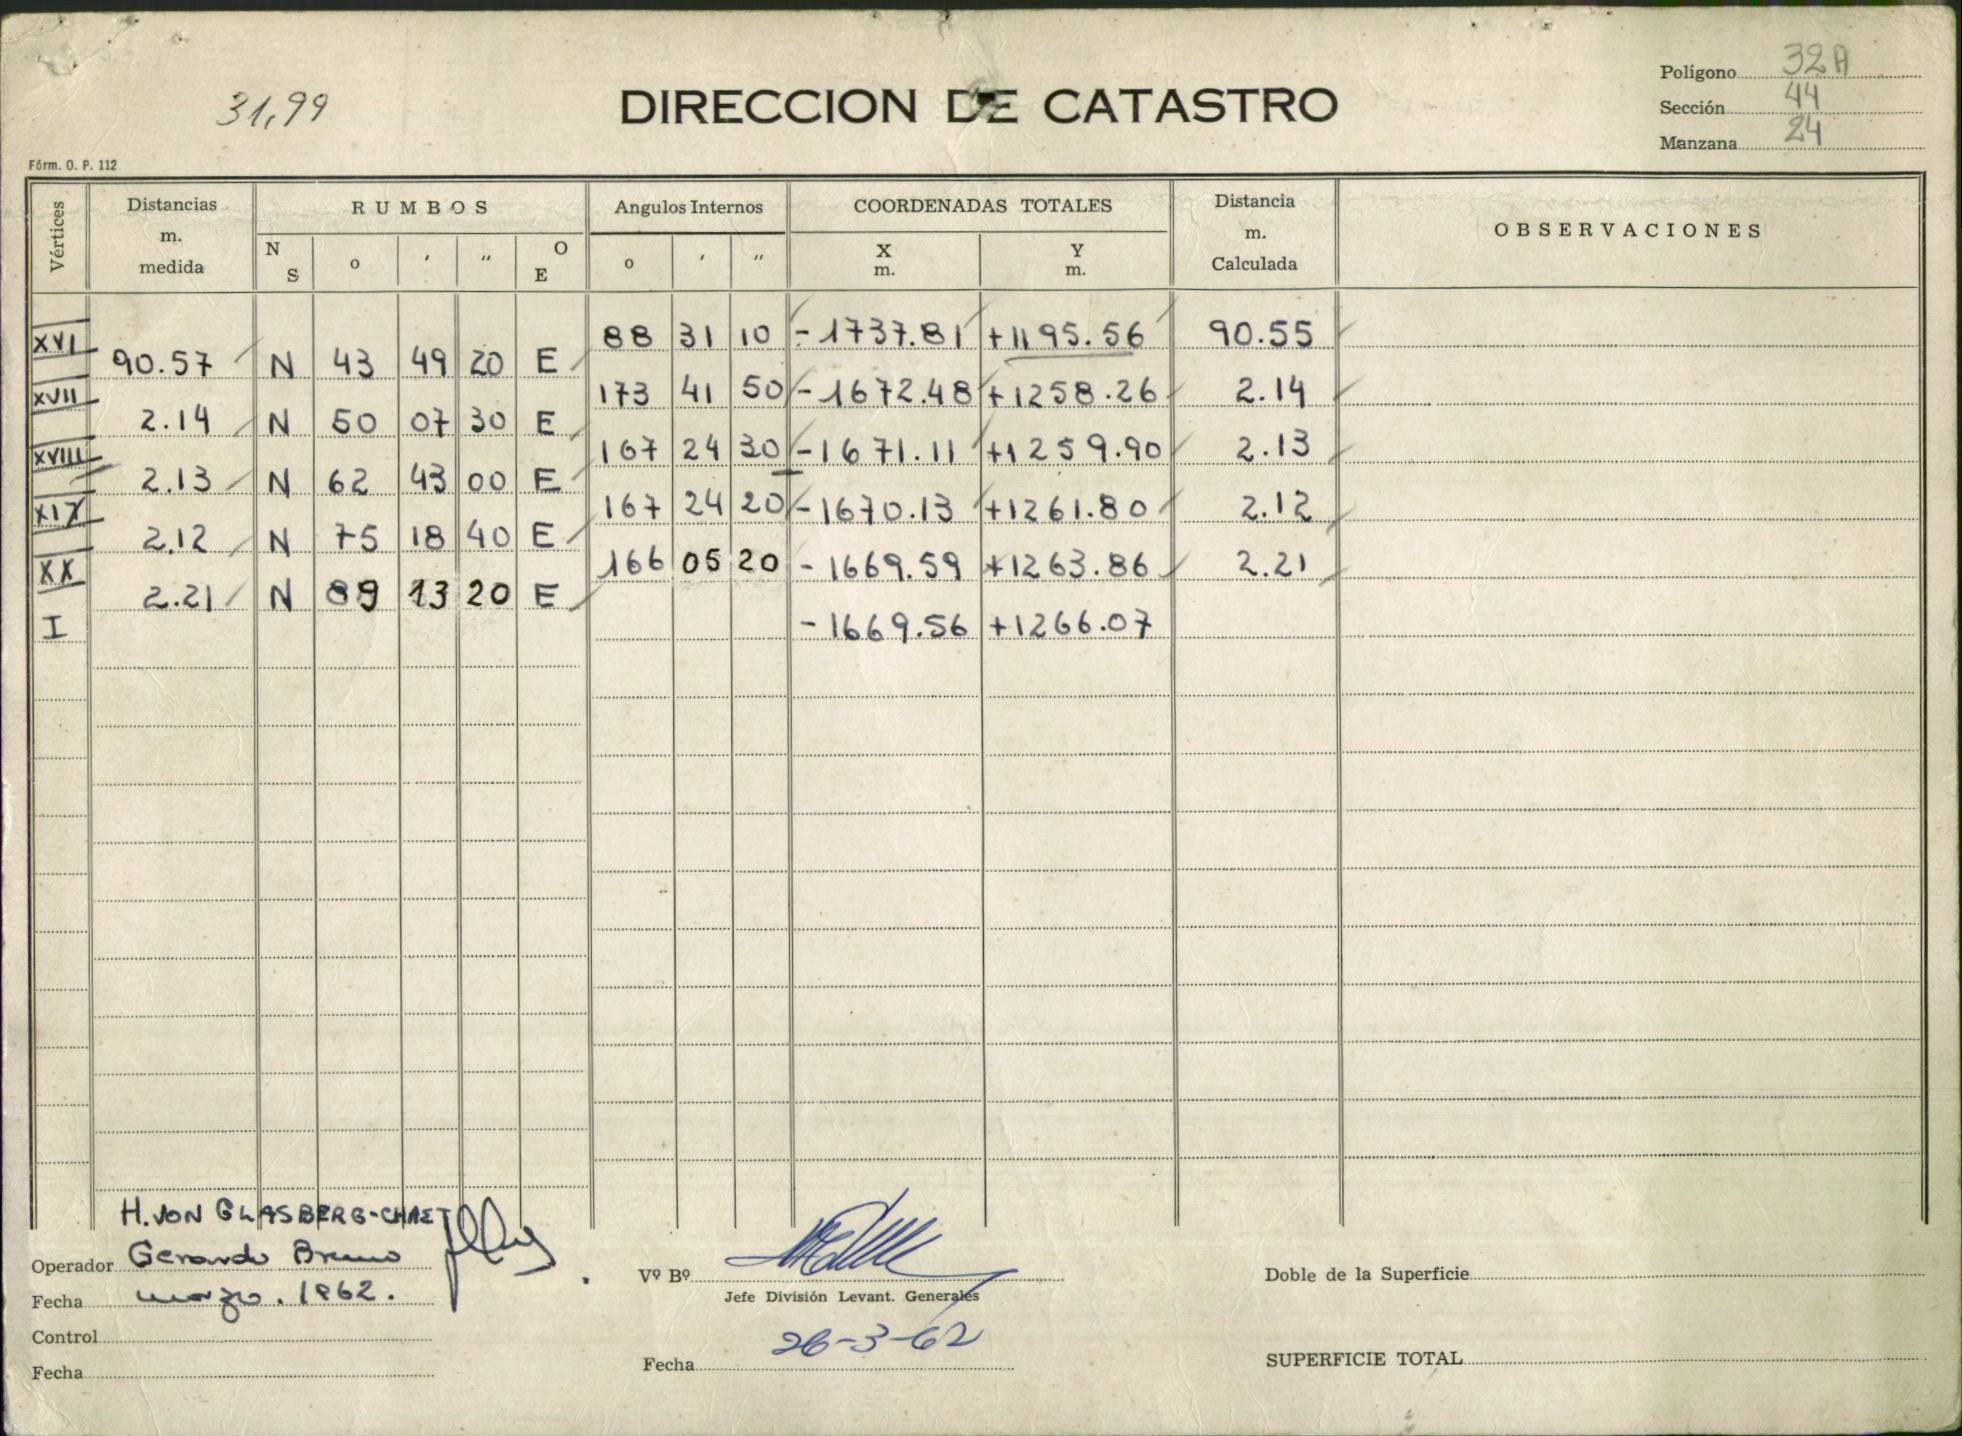 31,99
DIRECCION DE CATASTRO
Polígono 32A
Sección 44
Manzana 24
Fórm. O. P. 112
Vértices
Distancias m. medida
RUMBOS
Angulos Internos
COORDENADAS TOTALES
Distancia m. Calculada
OBSERVACIONES
N S o ′ ″ O E
o ′ ″
X m.
Y m.
XVI 88 31 10 -1737.81 +1195.56 90.55
90.57 N 43 49 20 E
XVII 173 41 50 -1672.48 +1258.26 2.14
2.14 N 50 07 30 E
XVIII 167 24 30 -1671.11 +1259.90 2.13
2.13 N 62 43 00 E
XIX 167 24 20 -1670.13 +1261.80 2.12
2.12 N 75 18 40 E
XX 166 05 20 -1669.59 +1263.86 2.21
2.21 N 89 13 20 E
I -1669.56 +1266.07
H. VON GLASBERG-CHAET
Operador Gerardo Bruno
Fecha marzo. 1962.
Control
Fecha
Vº Bº
Jefe División Levant. Generales
26-3-62
Fecha
Doble de la Superficie
SUPERFICIE TOTAL